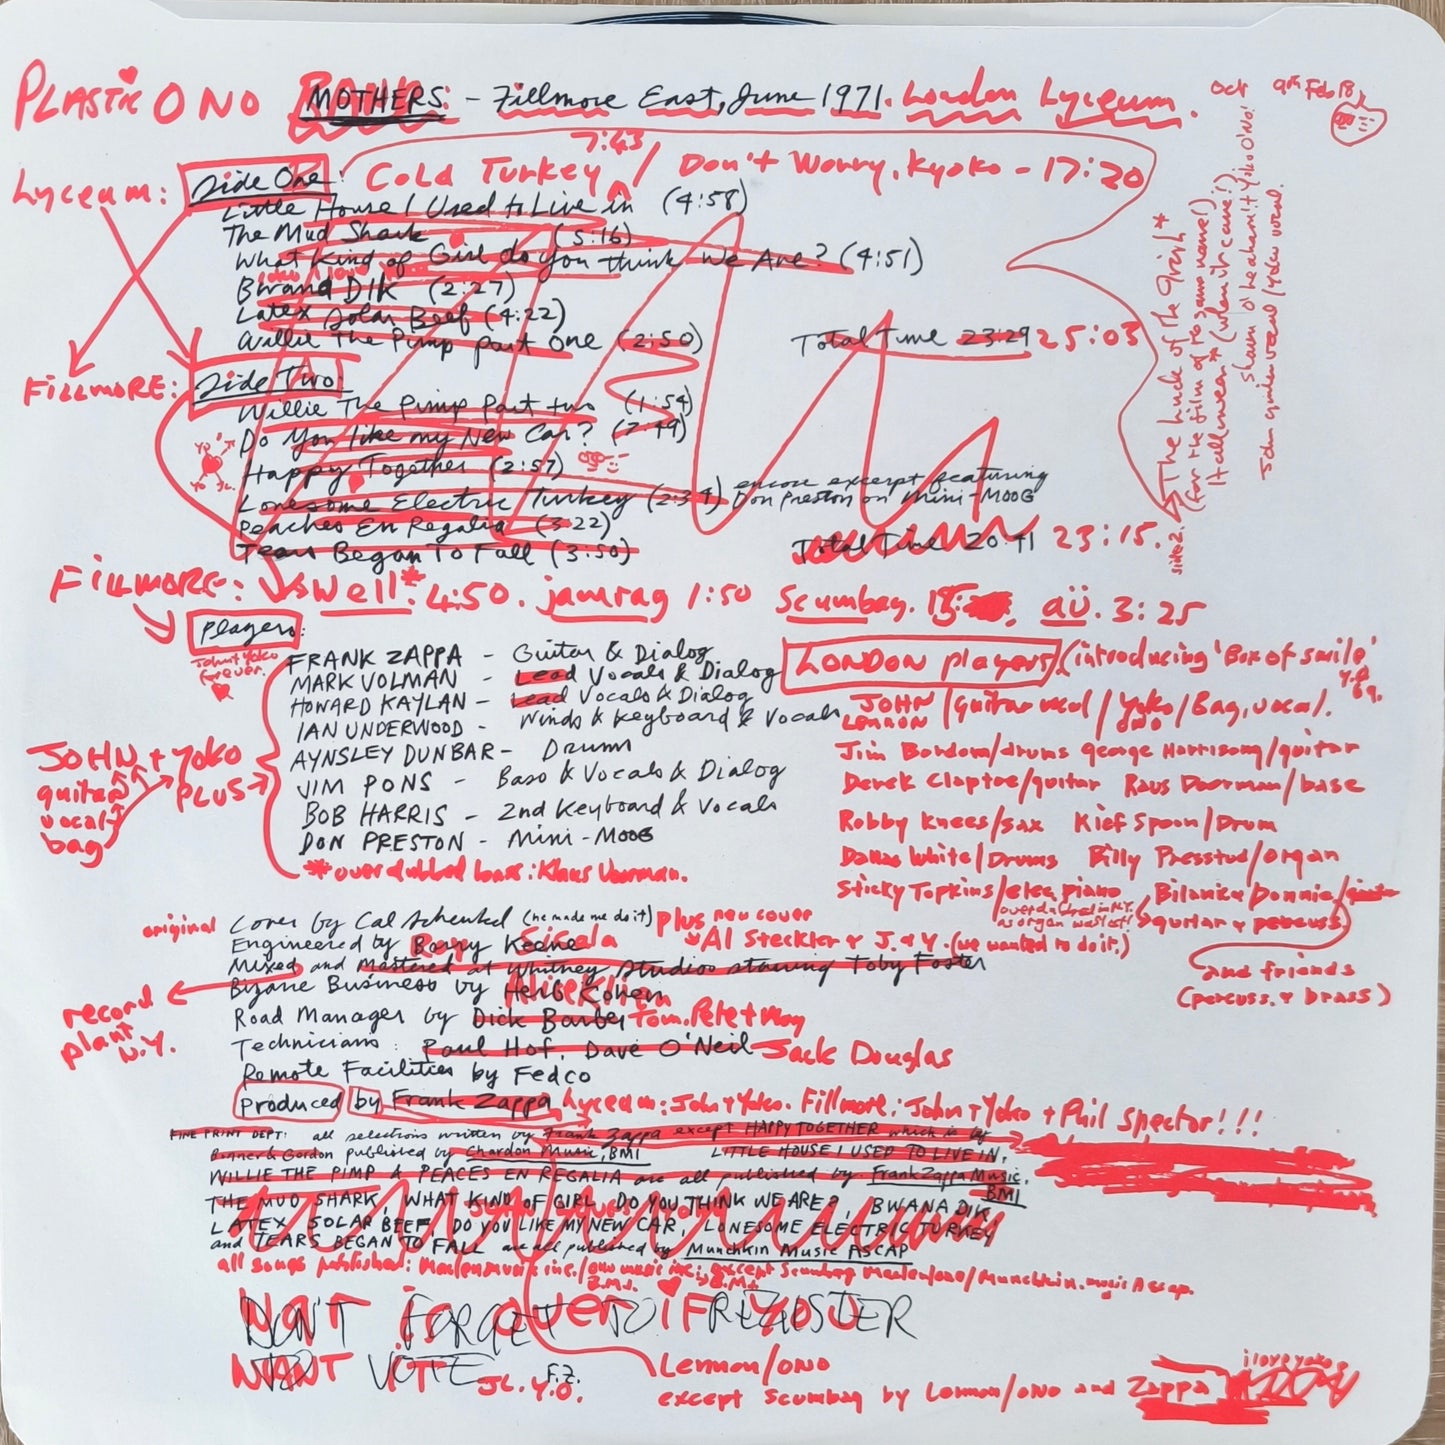 PLASTIC ONO BAND MOTHERS - Fillmore East, June 1971. London Lyceum.
Oct 9th Feb 18,
7:43
Lyceum: Side One: Cold Turkey / Don't Worry, Kyoko - 17:20
Little House I Used to Live in (4:58)
The Mud Shark (5:16)
What Kind of Girl do you think We Are? (4:51)
Bwana Dik (2:27)
Latex Solar Beef (4:22)
Willie The Pimp part one (2:50) Total Time 23:29 25:03
FILLMORE: Side Two:
Willie The Pimp Part two (1:54)
Do You like my New Car? (7:49)
Happy Together (2:57)
Lonesome Electric Turkey (2:34) encore excerpt featuring Don Preston on Mini-MOOG
Peaches En Regalia (3:22)
Tears Began To Fall (3:50) Total Time 20:41 23:15.
side 2. "The Luck of the Irish"*
(for the film of the same name!)
Halloween* (when it came!)
Shaun o'Leahan! + Yoko O'NO!
John guitar vocal / Yoko vocal.
FILLMORE: Well* 4:50. jamrag 1:50 Scumbag. aü. 3:25
players:
John + Yoko forever.
FRANK ZAPPA - Guitar & Dialog
MARK VOLMAN - Lead Vocals & Dialog
HOWARD KAYLAN - Lead Vocals & Dialog
IAN UNDERWOOD - Winds & Keyboard & Vocals
AYNSLEY DUNBAR - Drums
JIM PONS - Bass & Vocals & Dialog
BOB HARRIS - 2nd Keyboard & Vocals
DON PRESTON - Mini-MOOG
JOHN + YOKO PLUS
guitar
vocal
bag
* overdubbed bass: Klaus Voorman.
LONDON players (introducing 'Box of smile' Y.O. 69.
JOHN LENNON / guitar vocal / Yoko ONO / Bag, vocal.
Jim Bordom/drums george Harrisong/guitar
Derek Claptoe/guitar Raus Doorman/base
Robby Knees/sax Kief Spoon/Drum
Dallas White/Drums Billy Presstud/organ
Sticky Topkins/elec piano Bilanka & Donnie/guitar
(overdubbed in N.Y. as organ was lost!) guitar & percuss.
and friends
(percuss. & brass)
original Cover by Cal Schenkel (he made me do it) plus new cover
Al Steckler & J. & Y. (we wanted to do it.)
Engineered by Barry Keene
Mixed and Mastered at Whitney Studios starring Toby Foster
record plant N.Y.
Bizarre Business by Herb Cohen
Road Manager by Dick Barber Tom. Pete + May
Technicians: Paul Hof, Dave O'Neil Jack Douglas
Remote Facilities by Fedco
Produced by Frank Zappa Lyceum: John + Yoko. Fillmore: John + Yoko + Phil Spector!!!
FINE PRINT DEPT: all selections written by Frank Zappa except HAPPY TOGETHER which is by
Bonner & Gordon published by Chardon Music, BMI LITTLE HOUSE I USED TO LIVE IN,
WILLIE THE PIMP & PEACES EN REGALIA are all published by Frank Zappa Music, BMI
THE MUD SHARK, WHAT KIND OF GIRL DO YOU THINK WE ARE?, BWANA DIK,
LATEX SOLAR BEEF, DO YOU LIKE MY NEW CAR, LONESOME ELECTRIC TURKEY
and TEARS BEGAN TO FALL are all published by Munchkin Music ASCAP
all songs published: Maclen music inc./ono music inc; except Scumbag Maclen/ono/Munchkin. music Ascap.
B.M.I. B.M.I.
DON'T FORGET TO REGISTER
TO VOTE F.Z.
War is over if you
WANT IT JL. Y.O.
Lennon/ONO
except Scumbag by Lennon/ONO and Zappa
i love yoko